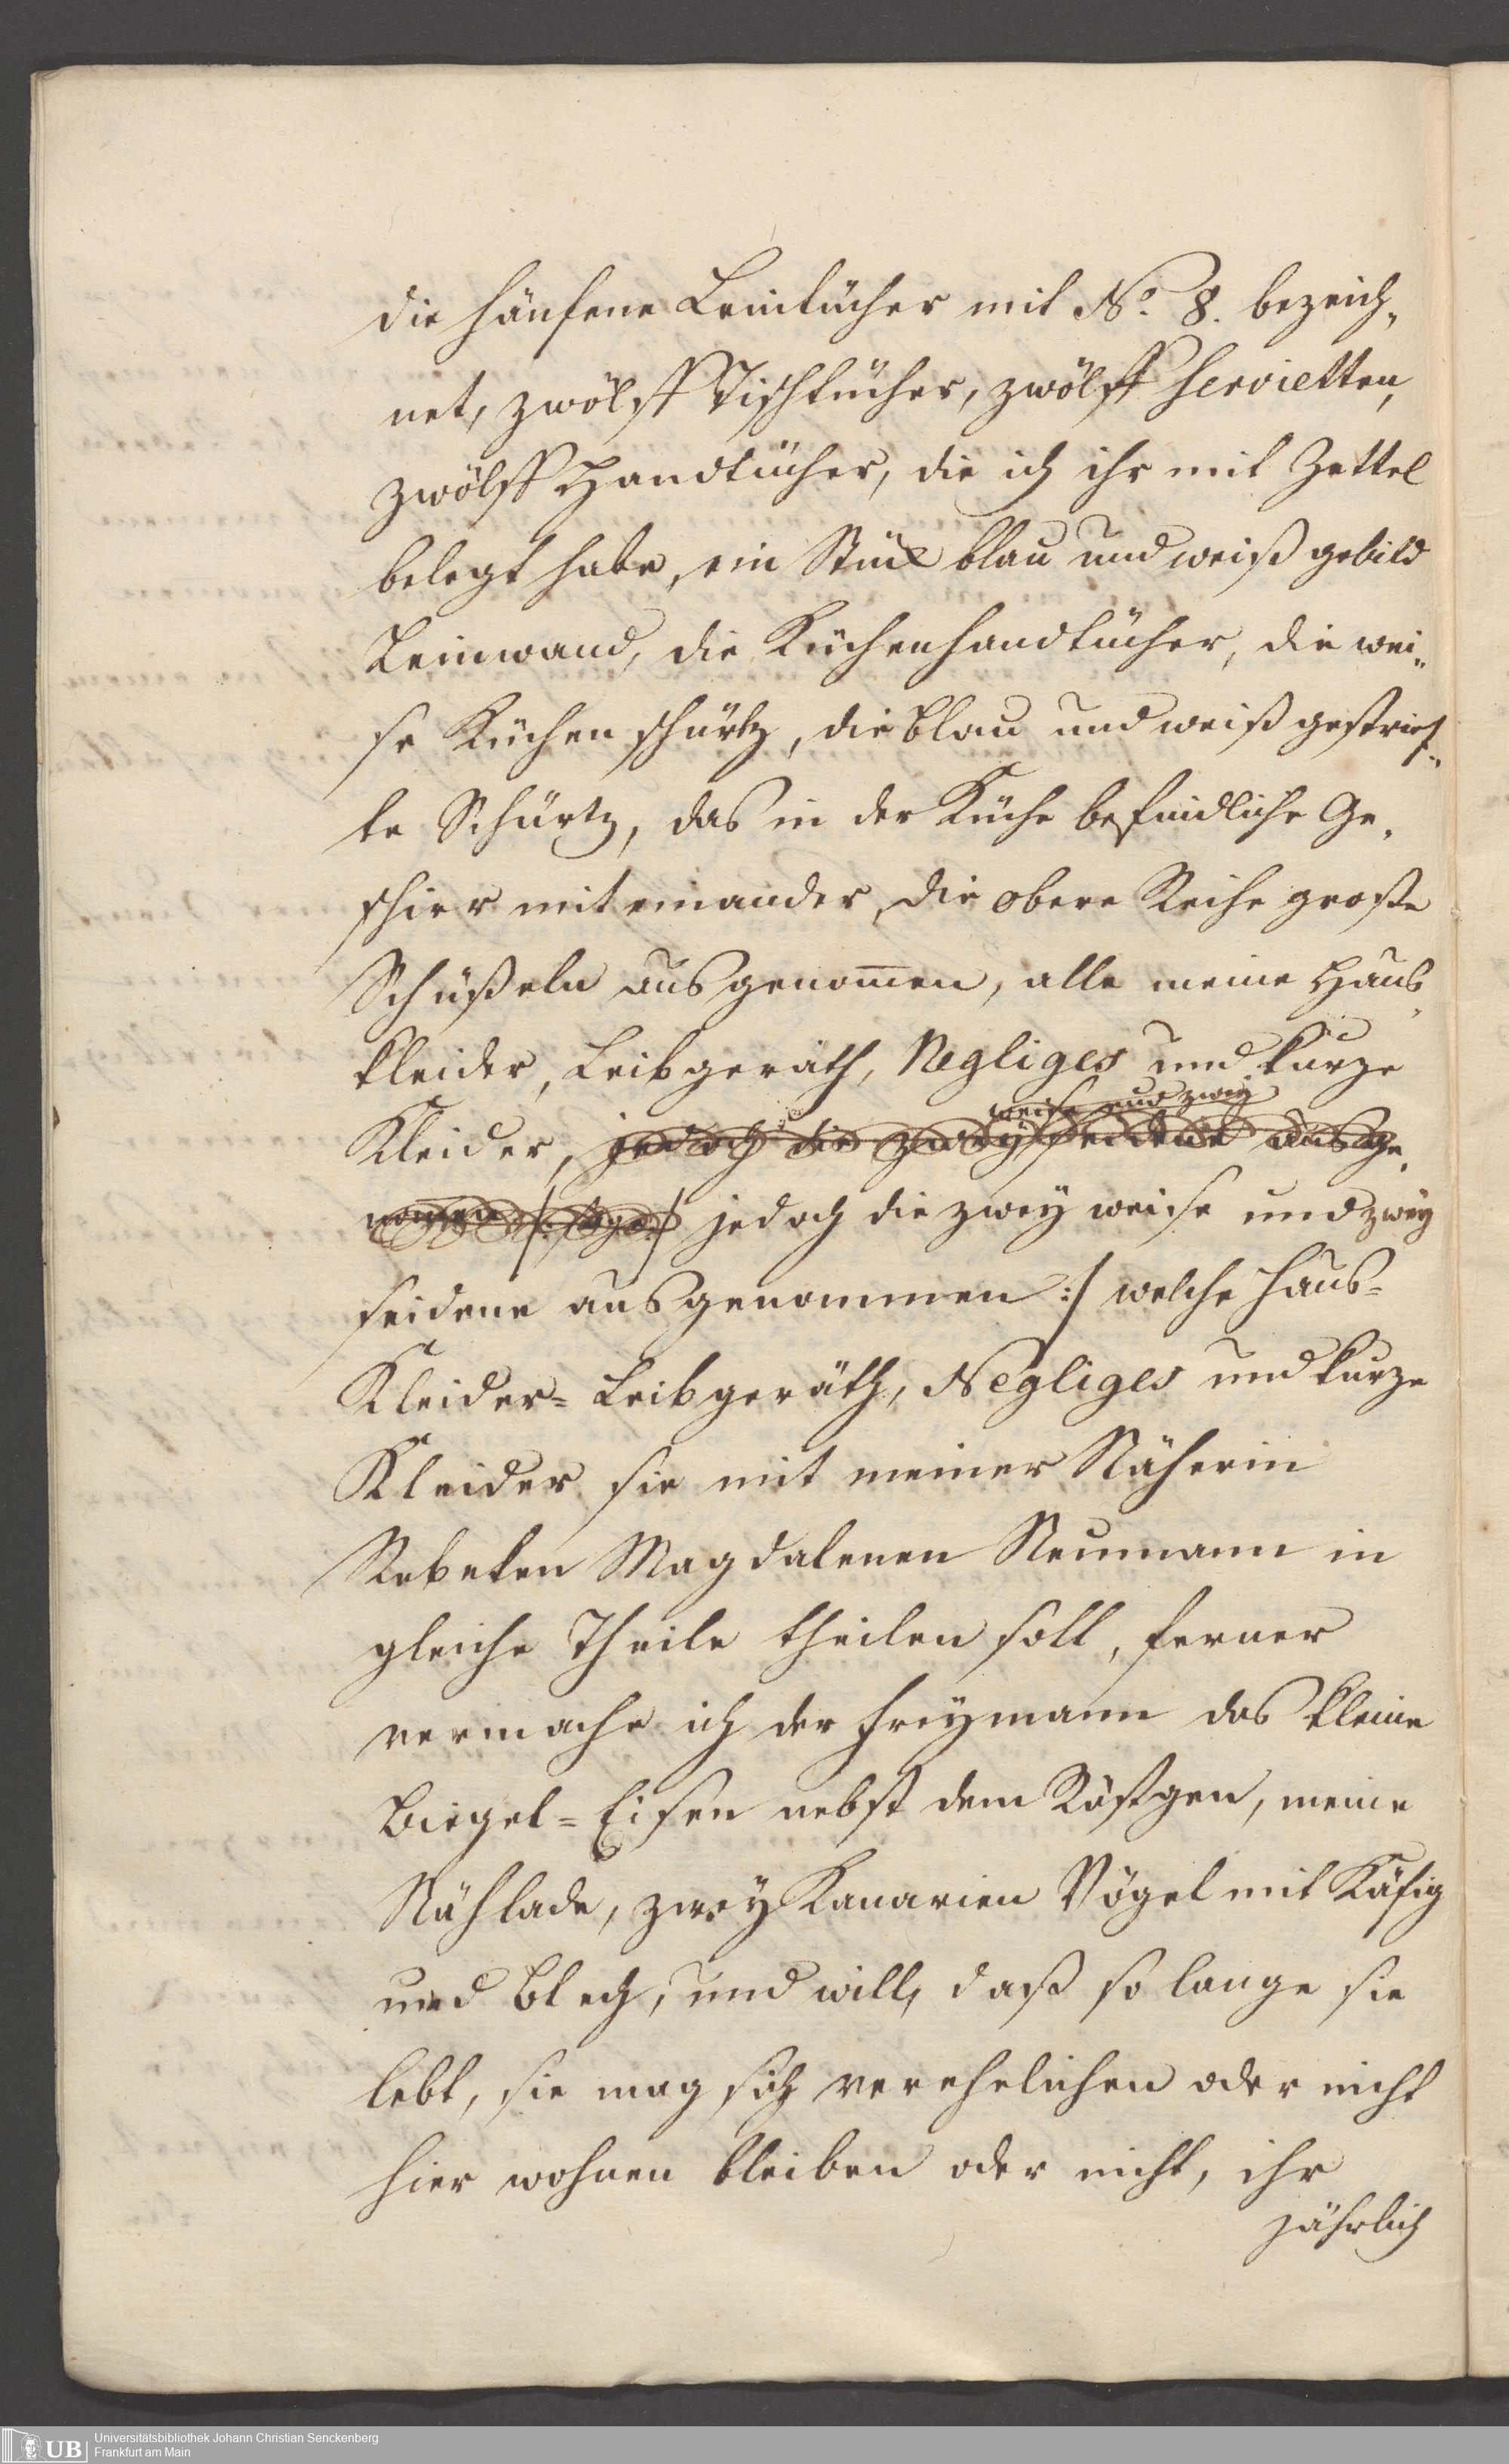 die hänfene Leintücher mit No. 8. bezeich„
net, zwölff Tischtücher, zwölff Servietten,
zwölff Handtücher, die ich ihr mit Zettel
belegt habe, ein Stück blau und weiß gebild
Leinwand, die Küchenhandtücher, die wei„
se Küchenschürtz, die blau und weiß gestreif„
te Schürtz, das in der Küche befindliche Ge„
schier miteinander, die obere Reihe große
Schüßeln ausgenom̅en, alle meine Haus„
kleider, Leibgeräth, Negliges und kurze
weise und zwey
Kleider, jedoch die zwey seidene ausge„
nom̅en /: sage :/ jedoch die zwey weise und zwey
seidene ausgenommen :/ welche Haus=
Kleider= Leibgeräth, Negliges und kurze
Kleider sie mit meiner Näherin
Rebeken Magdalenen Neumann in
gleiche Theile theilen soll, ferner
vermache ich der Freymann das kleine
Biegel=Eisen nebst dem Röstgen, meine
Nählade, zwey Kanarien Vögel mit Käfig
und Blech, und will, daß so lange sie
lebt, sie mag sich verehelichen oder nicht
hier wohnen bleiben oder nicht, ihr
jährlich
UB
Universitätsbibliothek Johann Christian Senckenberg
Frankfurt am Main